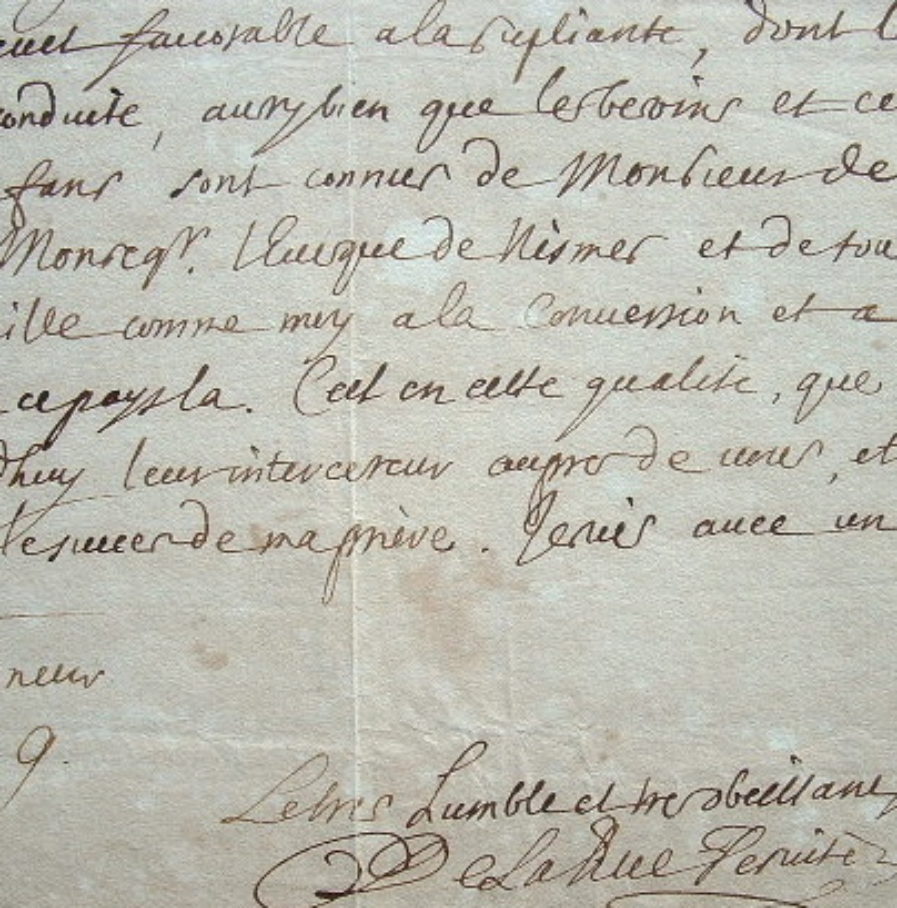 favorable a la supliante, dont l
conduite, aussy bien que les besoins et ce
fans sont connus de Monsieur de
Monseigr. l'Evesque de Nismes et de tou
ille comme moy a la Conversion et a
ce pays la. C'est en cette qualité, que
d'huy leur intercesseur aupres de vous, et
le succes de ma prière. Je suis avec un
neur
9.
Le tres humble et tres obeissant
De La Rue Jesuite